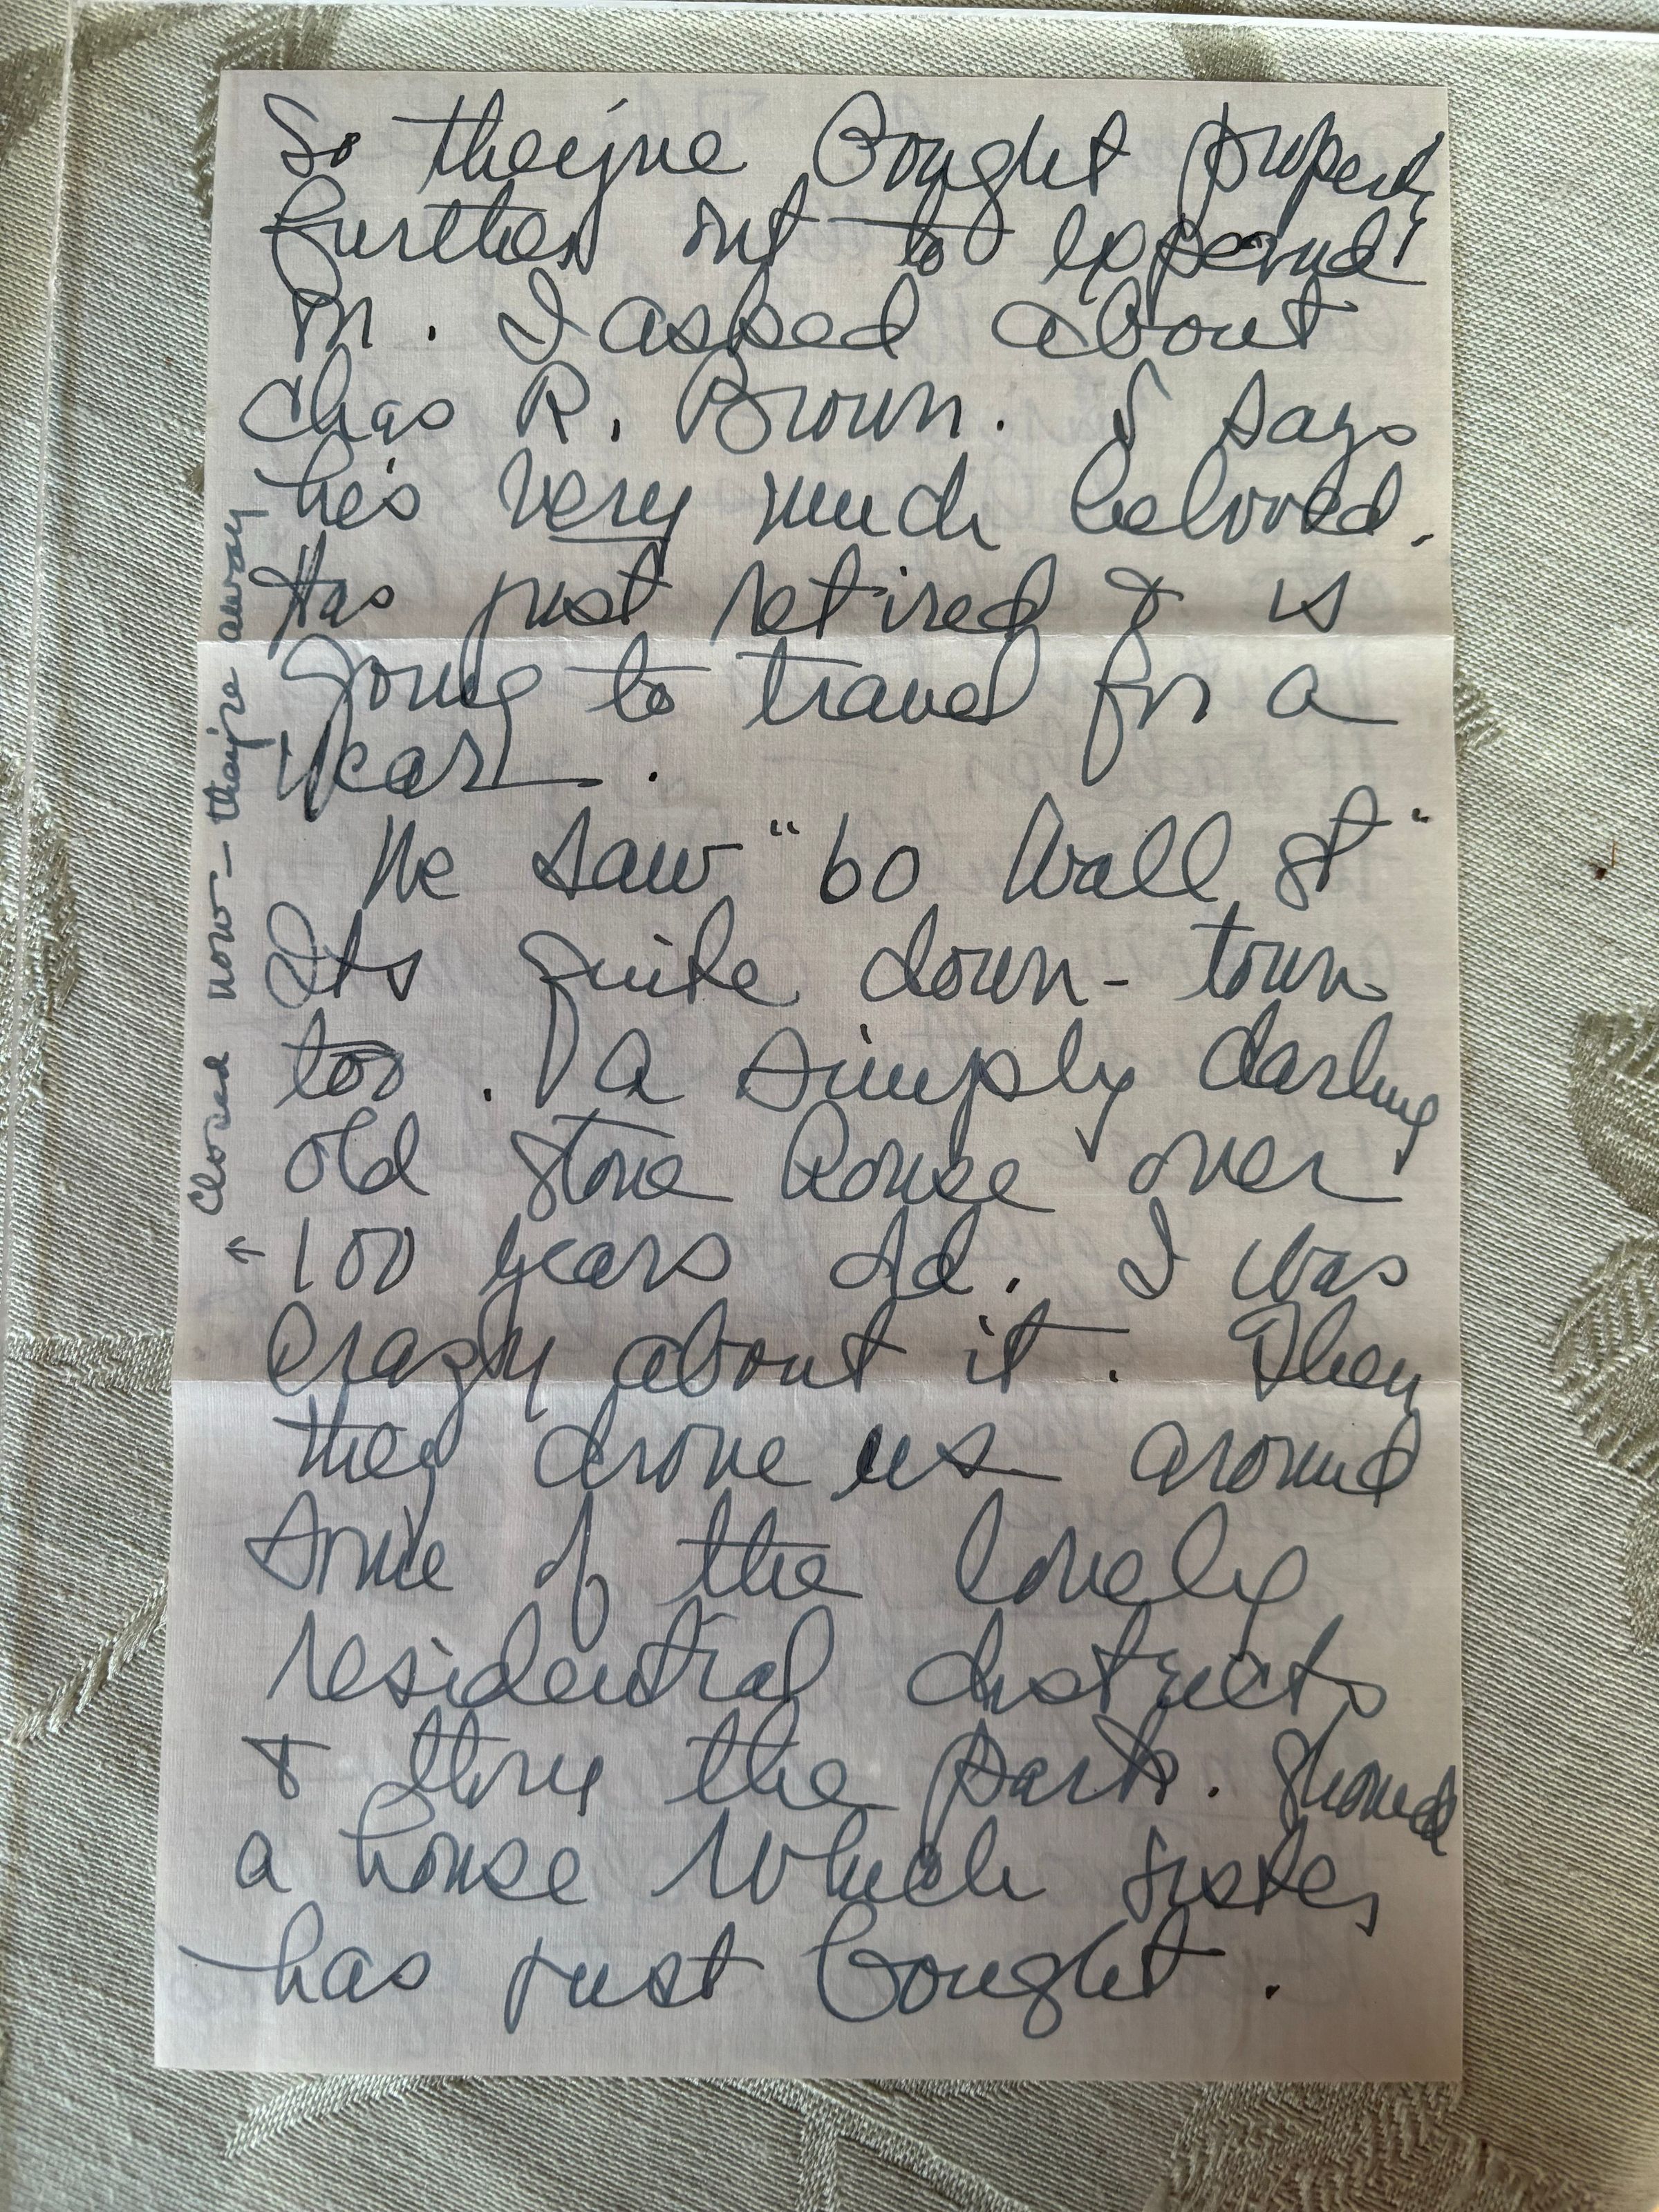 So they've bought property
further out to expand
on. I asked about
Chas R. Brown. & says
he's very much beloved.
Has just retired & is
going to travel for a
year.
We saw "60 Wall St"
Its quite down-town
too. A simply darling
old stone house over
100 years old. I was
crazy about it. Then
they drove us around
some of the lovely
residential districts
& thru the park. Showed
a house which sister
has just bought.
↑ Closed now - they're away